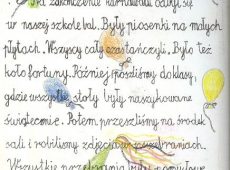 Na zakończenie karnawału odbył się
w naszej szkole bal. Były piosenki na małych
płytach. Wszyscy cały czas tańczyli. Było też
koło fortuny. Później poszliśmy do klasy,
gdzie wszystkie stoły były naszykowane
świątecznie. Potem przeszliśmy na środek
sali i robiliśmy zdjęcia w przebraniach.
Wszystkie przebrania były